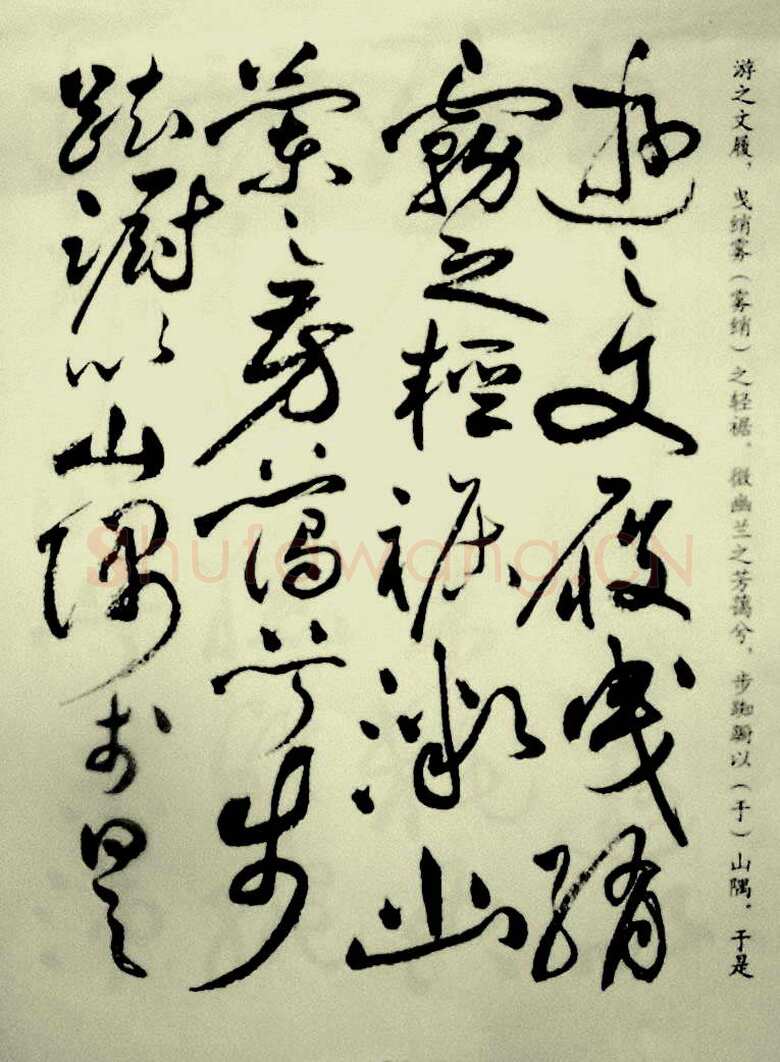 游之文履，曳绡雾（雾绡）之轻裾。微幽兰之芳蔼兮，步踟蹰以（于）山隅。于是
遊之文履曳綃
霧之輕裾微幽
蘭之芳藹兮步
踟躕以山隅於是
Shufawang.CN